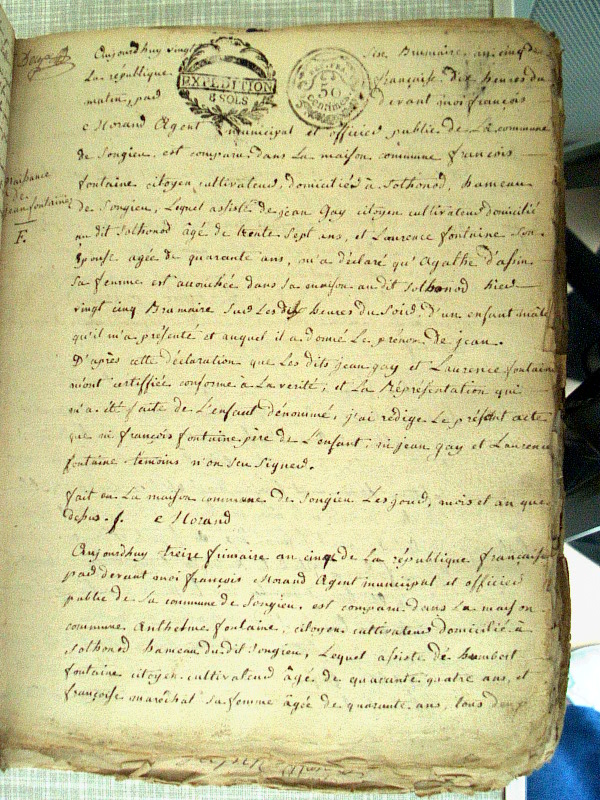 Aujourdhuy vingt sise Brumaire an cinq de
La république française dix heures du
matin, pard devant moi françois
Morand Agent municipal et officier public de La commune
de Songieu, est comparu dans La maison commune françois
fontaine citoyen cultivateur, domicilié à Sothonod, hameau
de Songieu, Lequel assisté de jean Gay citoyen cultivateur domicilié
au dit Sothonod âgé de trente Sept ans, et Laurence fontaine Son
Epouse agée de quarante ans, m'a déclaré qu'Agathe d'assin
Sa femme est accouchée dans Sa maison au dit Sothonod hier
vingt cinq Brumaire Sur Les dix heures du Soir, D'un enfant mâle
qu'il m'a présenté et auquel il a donné Le prénom de jean.
D'après cette déclaration que Les dits jean gay et Laurence fontaine
m'ont certiffiée conforme à La verité, et La Représentation qui
m'a été faite de L'enfant dénommé, j'ai rédigé Le présent acte
que ni françois fontaine père de L'enfant, ni jean gay et Laurence
fontaine témoins n'on Seu Signer.
fait en La maison commune de Songieu Les jour, mois et an que
dessus. Morand
Aujourdhuy treize frimaire an cinq de La république française
pard devant moi françois Morand Agent municipal et officier
public de La commune de Songieu, est comparu dans La maison
commune Anthelme fontaine, citoyen cultivateur domicilié à
Sothonod hameau du dit Songieu, Lequel assisté de humbert
fontaine citoyen cultivateur âgé de quarante quatre ans, et
françoise maréchal sa femme âgée de quarante ans, tous deux
EXPEDITION
8 SOLS
50
Centimes
Naissance
de
jean fontaine
F.